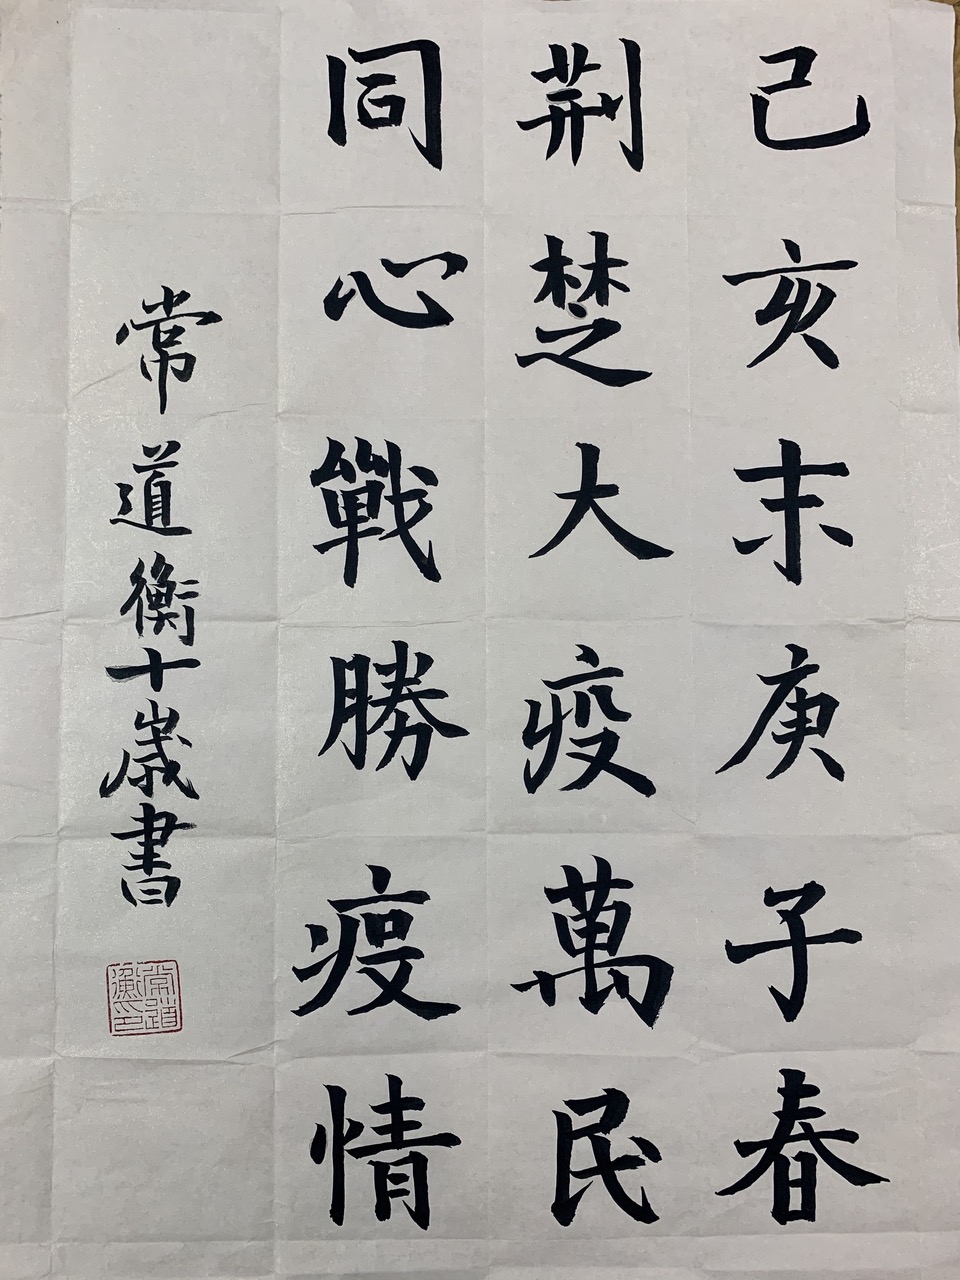 己亥末庚子春
荆楚大疫萬民
同心戰勝疫情
常道衡十歲書
常道衡印